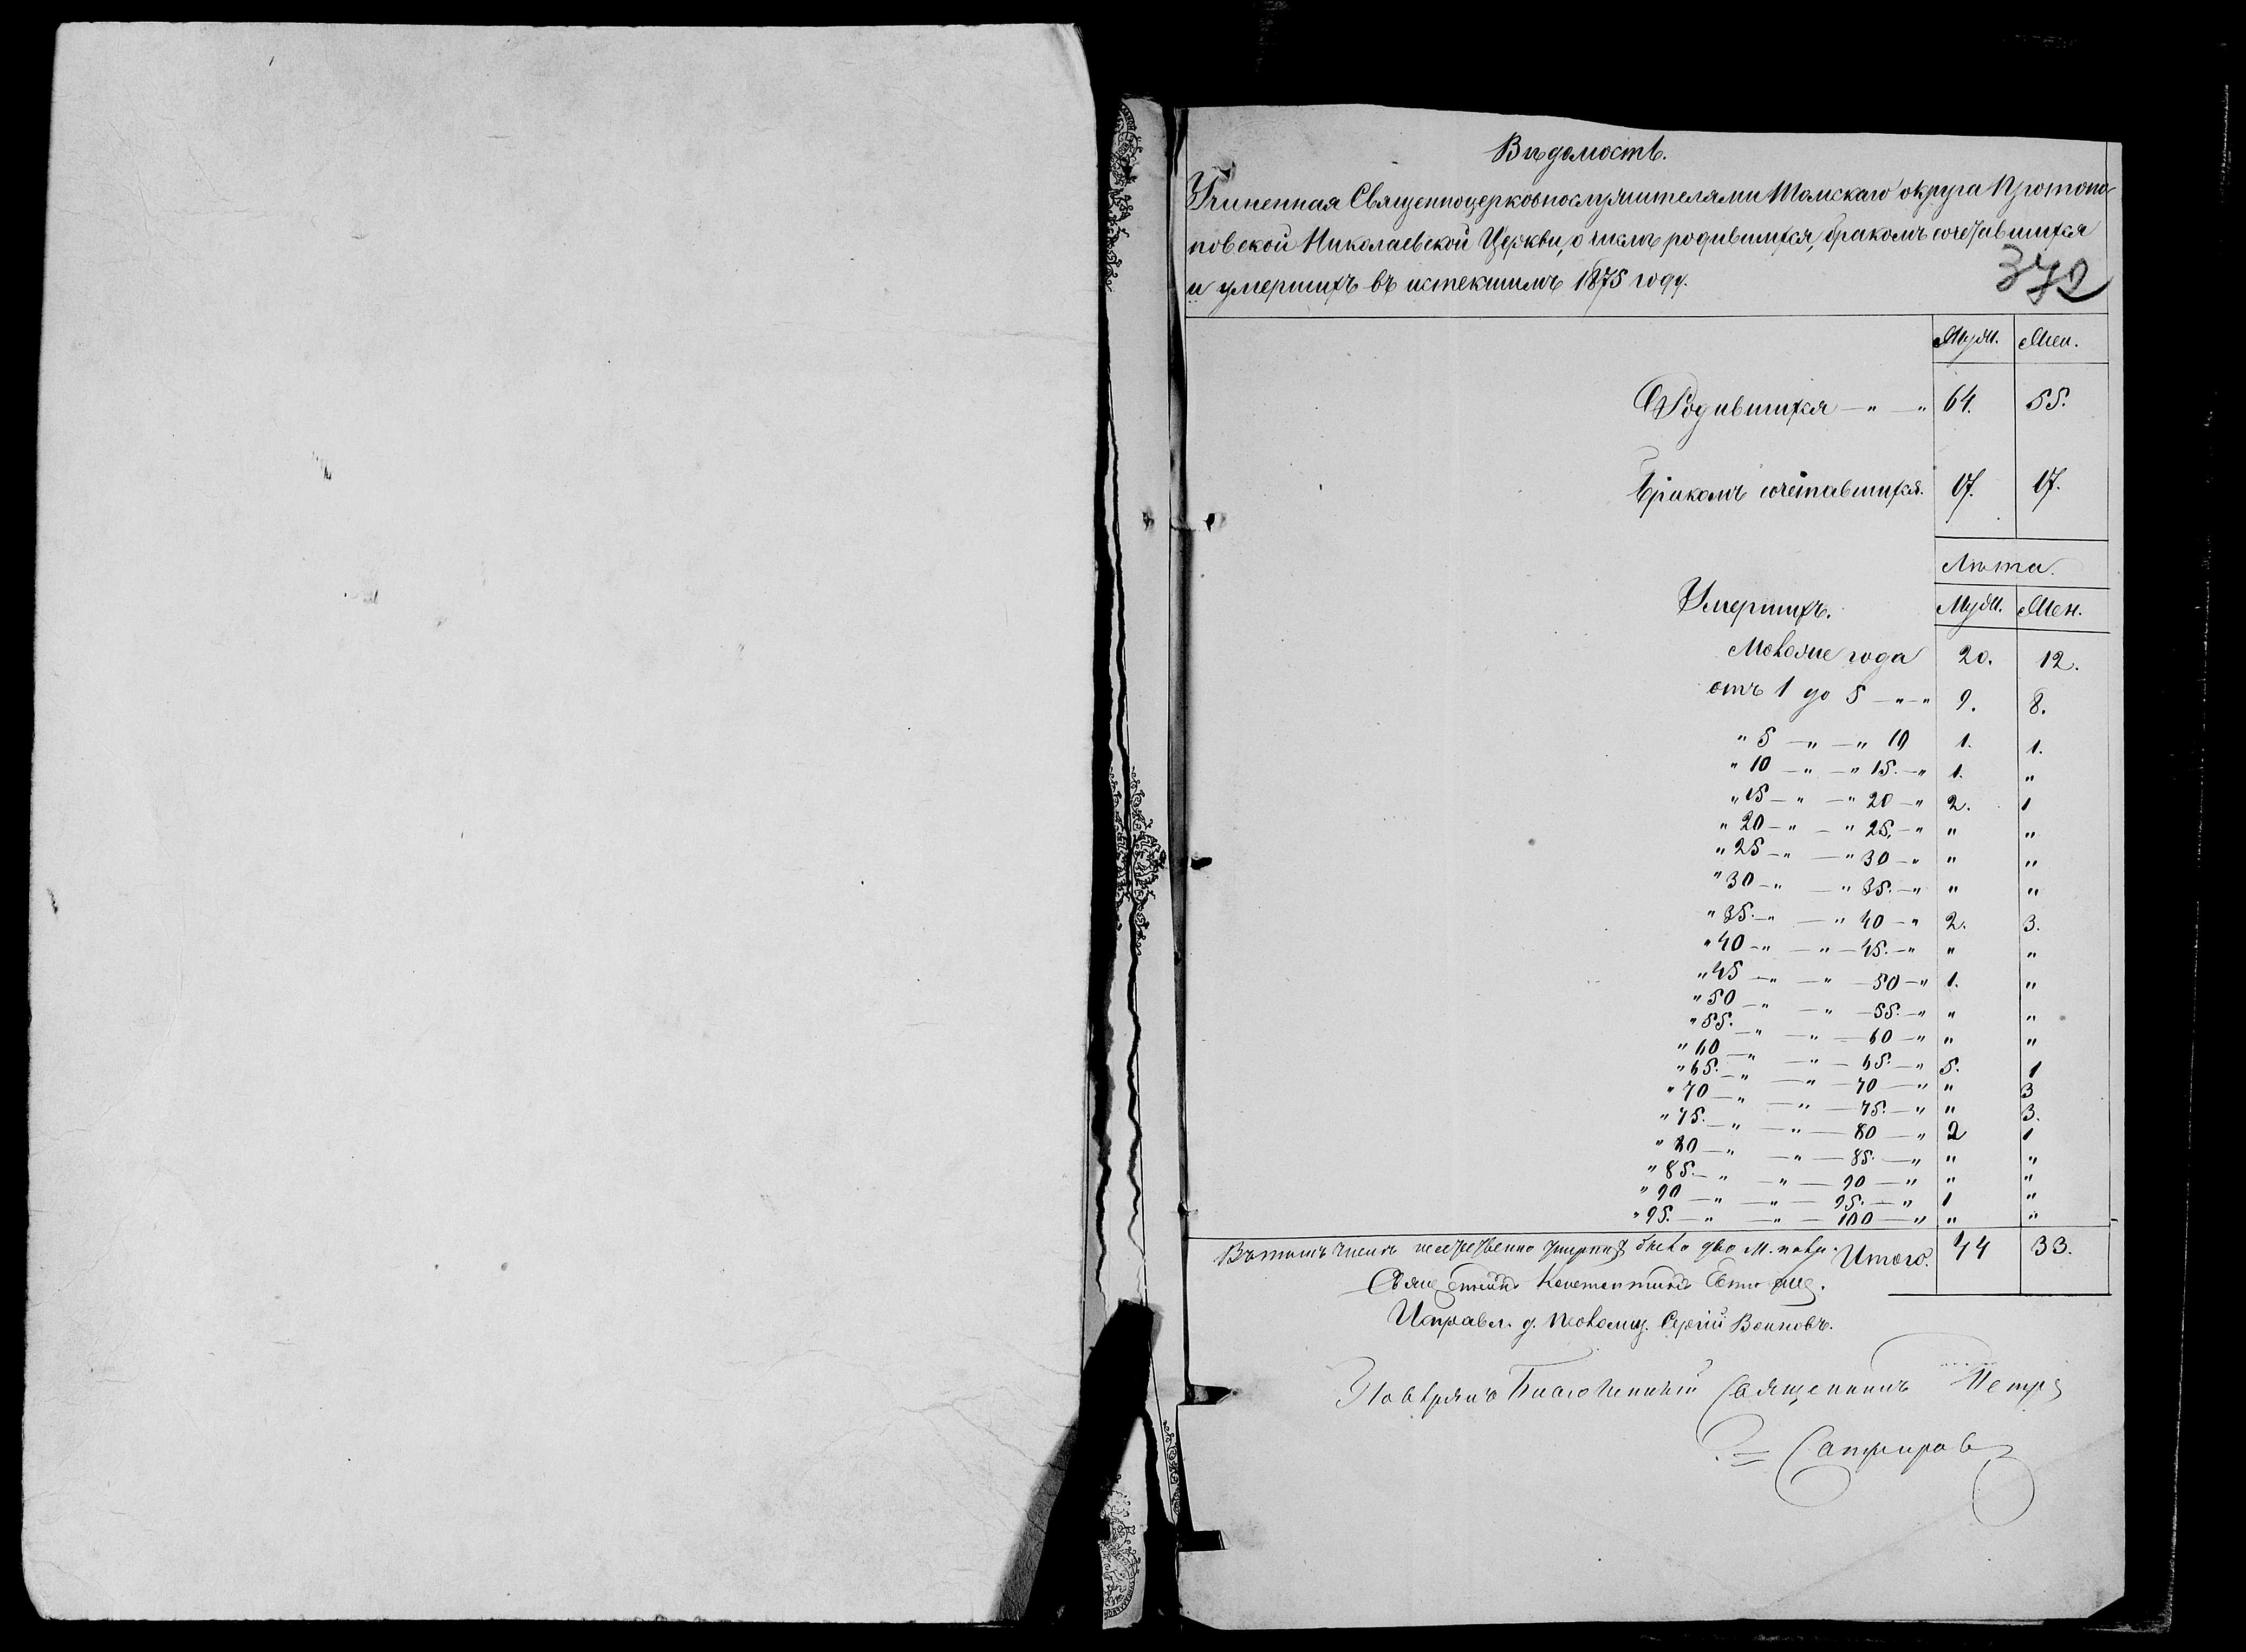 Вѣдомость.
Учиненная Священноцерковнослужителями Томскаго округа Протопо-
повской Николаевской Церкви, о числѣ родившихся, бракомъ сочетавшихся
и умершихъ въ истекшемъ 1875 году.
372
Муж. Жен.
Родившихся — „ — „ 64. 55.
Бракомъ сочетавшихся. 17. 17.
Лѣта.
Умершихъ. Муж. Жен.
Моложе года 20. 12.
отъ 1 до 5 — „ — „ 9. 8.
„ 5 — „ — „ 10 1. 1.
„ 10 — „ — „ 15. — „ 1. „
„ 15 — „ — „ 20 — „ 2. 1
„ 20 — „ — „ 25. — „ „ „
„ 25 — „ — „ 30 — „ „ „
„ 30 — „ — „ 35. — „ „ „
„ 35. — „ — „ 40 — „ 2. 3.
„ 40 — „ — „ — 45. — „ „ „
„ 45 — „ — „ — 50 — „ 1. „
„ 50 — „ — „ — 55. — „ „ „
„ 55. — „ — „ — 60 — „ „ „
„ 60 — „ — „ — 65. — „ 5. 1
„ 65. — „ — „ — 70 — „ „ 3
„ 70 — „ — „ — 75. — „ „ 3.
„ 75. — „ — „ — 80 — „ 2 1
„ 80 — „ — „ — 85. — „ „ „
„ 85. — „ — „ — 90 — „ „ „
„ 90 — „ — „ — 95. — „ 1 „
„ 95. — „ — „ — 100 — „ „ „
Въ томъ числѣ умершихъ было два м. пола. Итого. 44 33.
Константинъ
Исправл. д. Псаломщ. Сергій Воиновъ.
Повѣрялъ Благочинный Священникъ Петръ